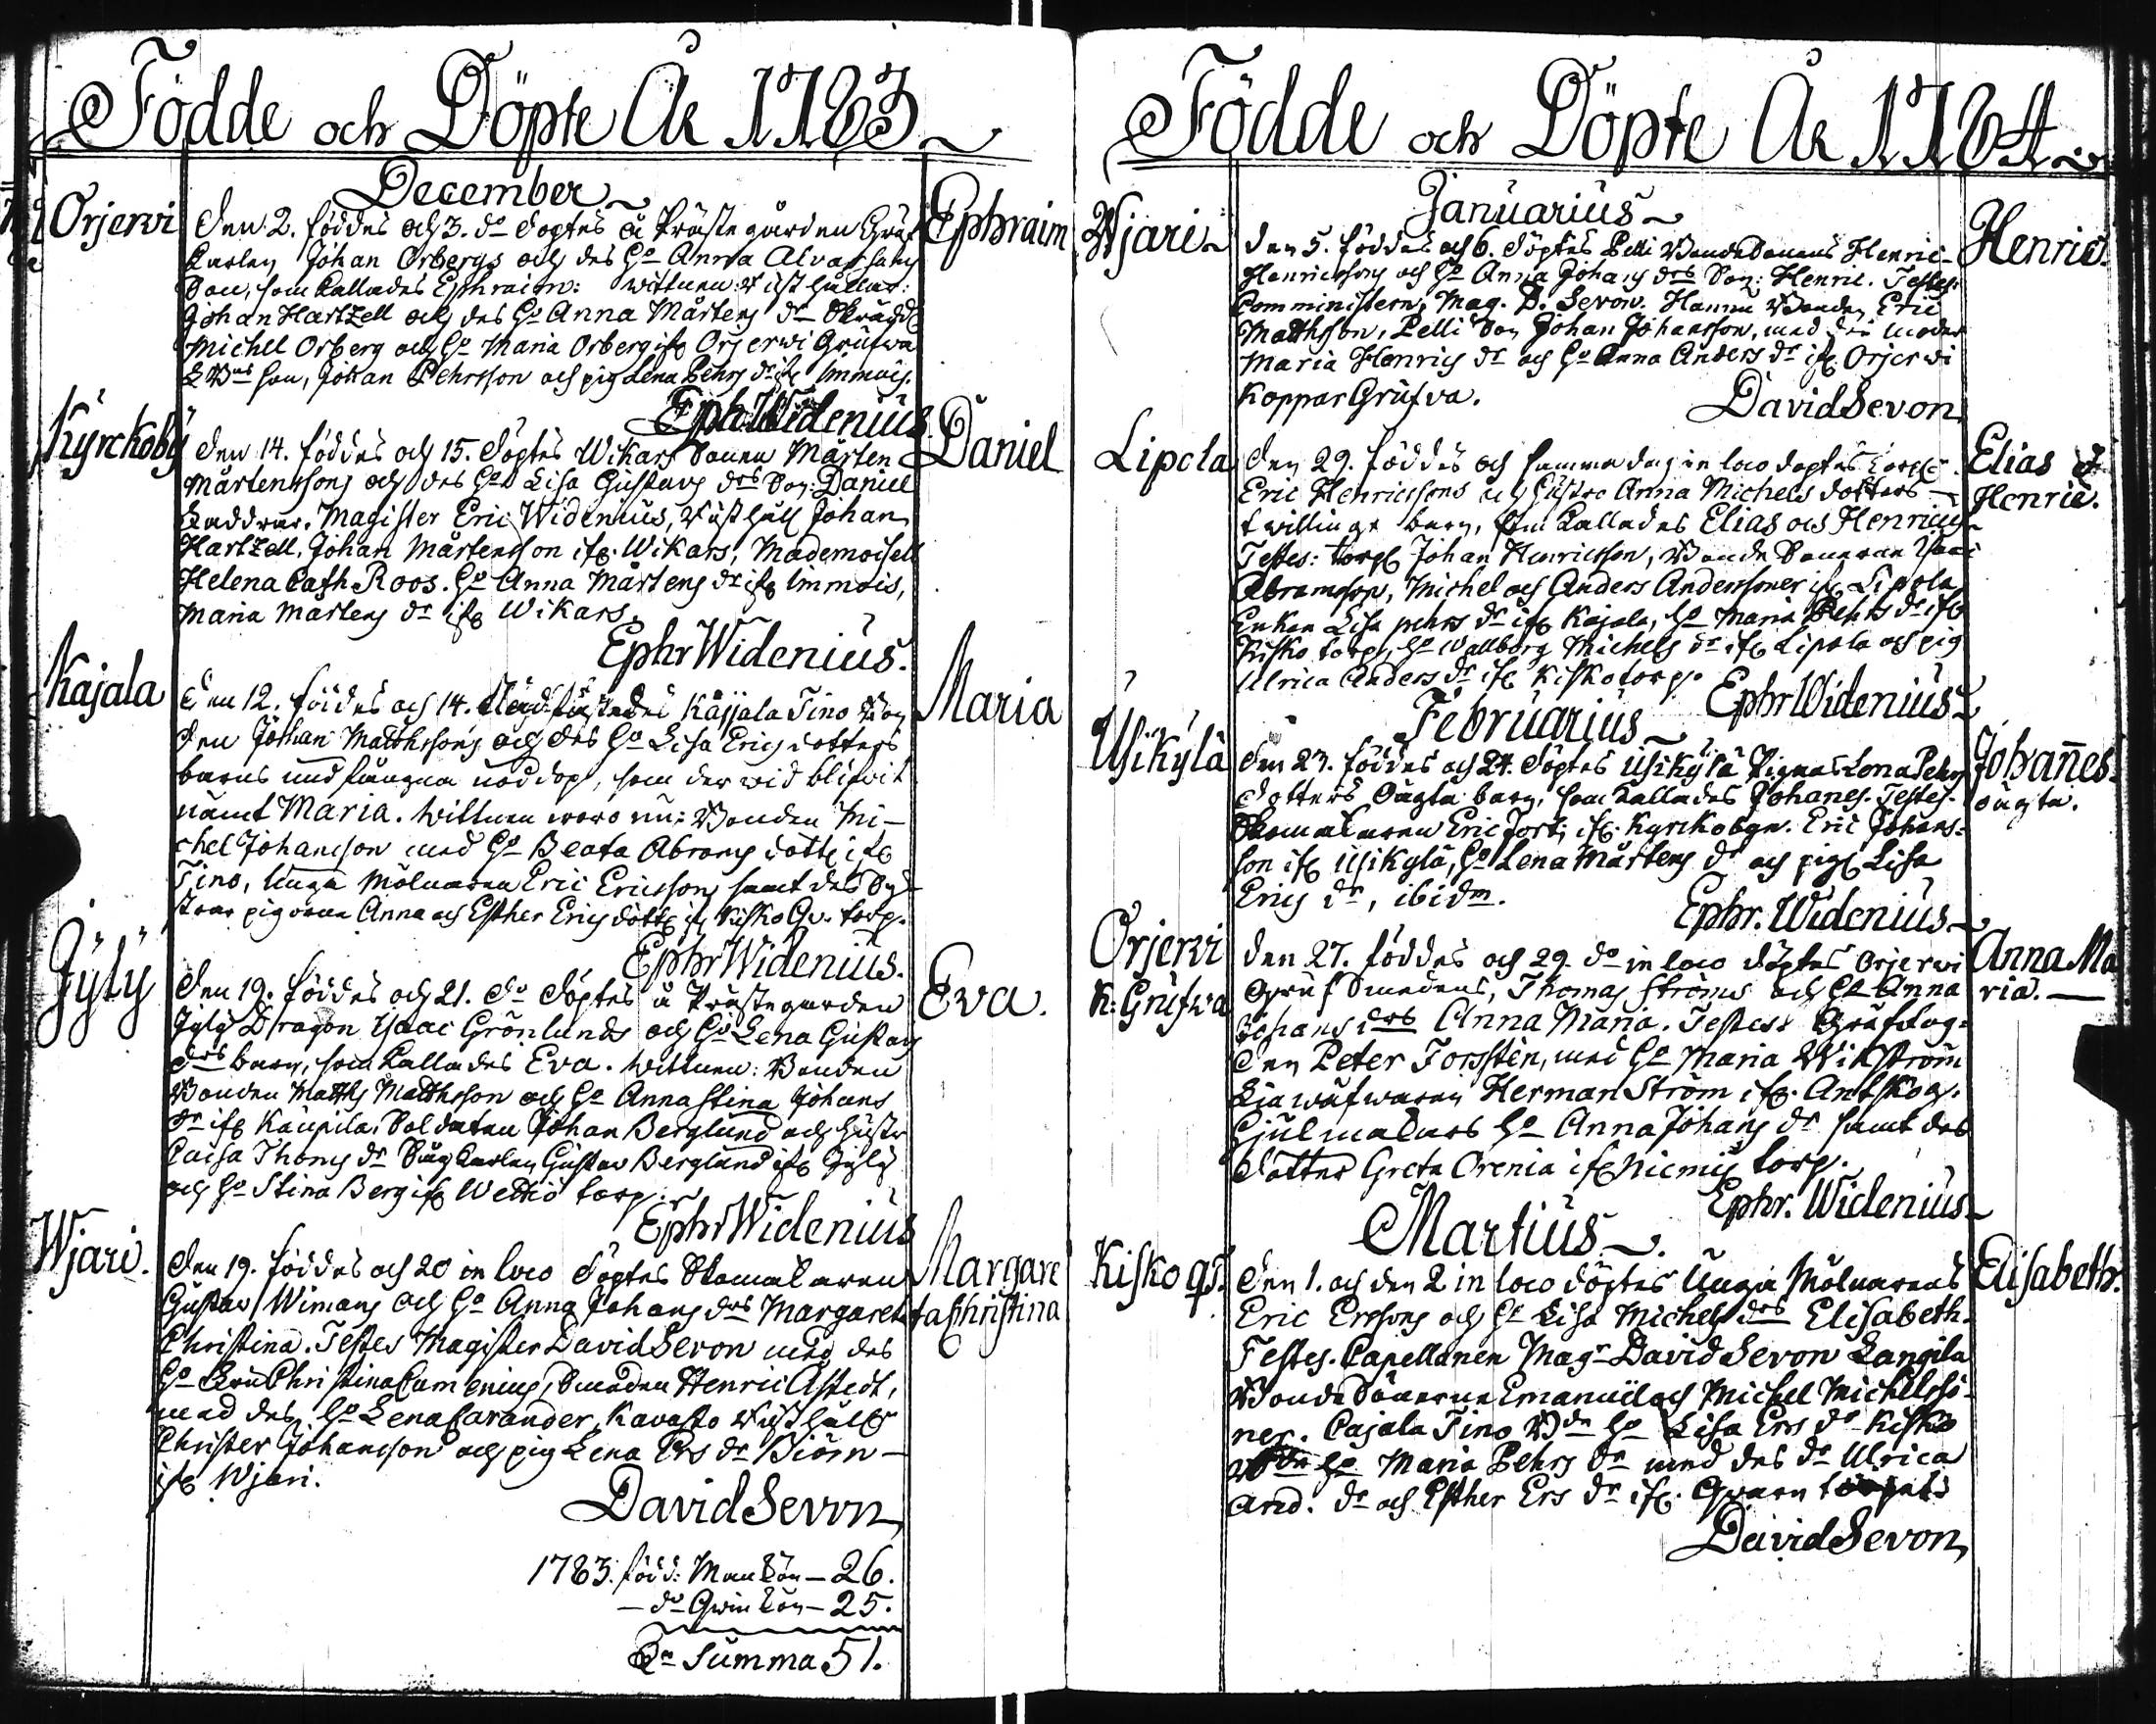 Födde och Döpte År 1783
December
Orjervi
Ephraim
Den 2. föddes och 3. do döptes å Prästegården Gruf
Karlen Johan Orbergs och des Ho Anna Alvarsdans
Son, som kallades Ephraim: wittnen: 
Johan Hartzell och des Ho Anna Mårtens dr
Michel Orberg och Ho Maria Orberg ifr Orjerwi Grufwa
son, Johan Pehrsson och pig Lena Pehrs dr ifr Immois.
Eph. Widenius
Kyrckoby
Daniel
Den 14. föddes och 15. döptes Wikars Sonen Mårten
Mårtenssons och des Ho Lisa Gustavs drs Son: Daniel
Faddrar. Magister Eric Widenius, Johan
Hartzell, Johan Mårtensson ifr. Wikars, Mademoisell
Helena Cath. Roos. Ho Anna Mårtens dr ifr Immois,
Maria Mårtens dr ifr Wikars.
Ephr Widenius.
Kajala
Maria
Den 12. föddes och 14. Kajjala Tino Bon
den Johan Matthssons och des Ho Lisa Erics dotters
barns undfångna nöddop, som der wid blifvit
nämt Maria. Wittnen woro nu: Bonden Mi-
chel Johansson med Ho Beata Abrams dotter ifr
Tino, Unga Mölnaren Eric Ericsson samt des Sy-
strar pigorna Anna och Esther Erics dött: ifr Kisko Qv. torp.
Ephr Widenius.
Jyly
Eva.
Den 19. föddes och 21. do döptes å Prästegården
Jyly Dragon Isaac Grönlunds och Ho Lena Gustavs
drs barn, som kallades Eva. Wittnen: Bonden
Bonden Matths Matthsson och Ho Anna Stina Johans
dr ifr Kaupila. Soldaten Johan Berglund och hustr
Caisa Thoms dr Karlen Gustav Berglund ifr Jyly
och Ho Stina Berg ifr Wettiö torp.
Ephr Widenius
Wjari.
Margare
ta Christina
Den 19. föddes och 20 in loco döptes Skomakaren
Gustav Wimans och Ho Anna Johans drs Margareta
Christina. Testes Magister David Sevon med des
Ho Christina Cumenius, Smeden Henric Astedt,
med des Ho Lena Carander, Kavasto
Christer Johansson och pig Lena Ers dr Biörn
ifr Wjari.
David Sevon
1783. född: Mankön — 26.
— do Qwinkön — 25.
Summa 51.
Födde och Döpte År 1784
Januarius
Wjari
Henric.
Den 5. föddes och 6. döptes Pelli Bondesonens Henric
Henricssons och Ho Anna Johans drs Son: Henric. Testes:
Comministern, Mag. D. Sevon. Hannu Bonden Eric
Matthsson, Pelli Son Johan Johansson, med des moder
Maria Henrics dr och Ho Anna Anders dr ifr. Orjerwi
Koppar Grufva.
David Sevon
Lipola
Elias &
Henric.
Den 29. föddes och samma dag in loco döptes torp:
Eric Henricssons och Hustro Anna Michels dotters
twillinge barn, som kallades Elias och Henricus
Testes: torp: Johan Henricsson, Bonde Sönerne Isaac
Abramsson, Michel och Anders Anderssoner ifr Lipola
Enkan Lisa Pehrs dr ifr Kajala, Ho Maria Pehrs dr ifr
Kisko torp, Ho Wallborg Michels dr ifr Lipola och pig
Ulrica Anders dr ifr Kisko torp.
Ephr Widenius
Februarius
Usikylä
Johannes
oägta.
Den 23. föddes och 24. döptes Usikylä Pigans Lena Pehrs
dotters oägta barn, som kallades Johanes. Testes.
Skomakaren Eric Fort, ifr. Kyrckobyn. Eric Johans-
son ifr Usikylä, Ho Lena Mårtens dr och pig Lisa
Erics dr, ibidm.
Ephr. Widenius
Orjerwi
K: Grufwa
Anna Ma
ria.
Den 27. föddes och 29. do in loco döptes Orjerwi
Gruf Smedens, Thomas Ströms och Ho Anna
Johans drs Anna Maria. Testes: Gruffog-
den Peter Forsstén, med Ho Maria Wikström
Herman Ström ifr. Antskog.
Hjulmakars Ho Anna Johans dr samt des
Dotter Greta Orenia ifr Niemis torp.
Ephr. Widenius
Martius
Kisko qs.
Elisabeth.
Den 1. och den 2 in loco döptes Unga Mölnarens
Eric Erssons och Ho Lisa Michels drs Elisabeth.
Testes. Capellanen Magr David Sevon Langila
Bonde Sönerne Emanuel och Michel Michelssö-
ner. Cajala Tino Bdn Ho Lisa Ers dr Kisko
Bdn Ho Maria Pehrs dr med des dr Ulrica
And. dr och Esther Ers dr ifr. Qvarn torpet
David Sevon